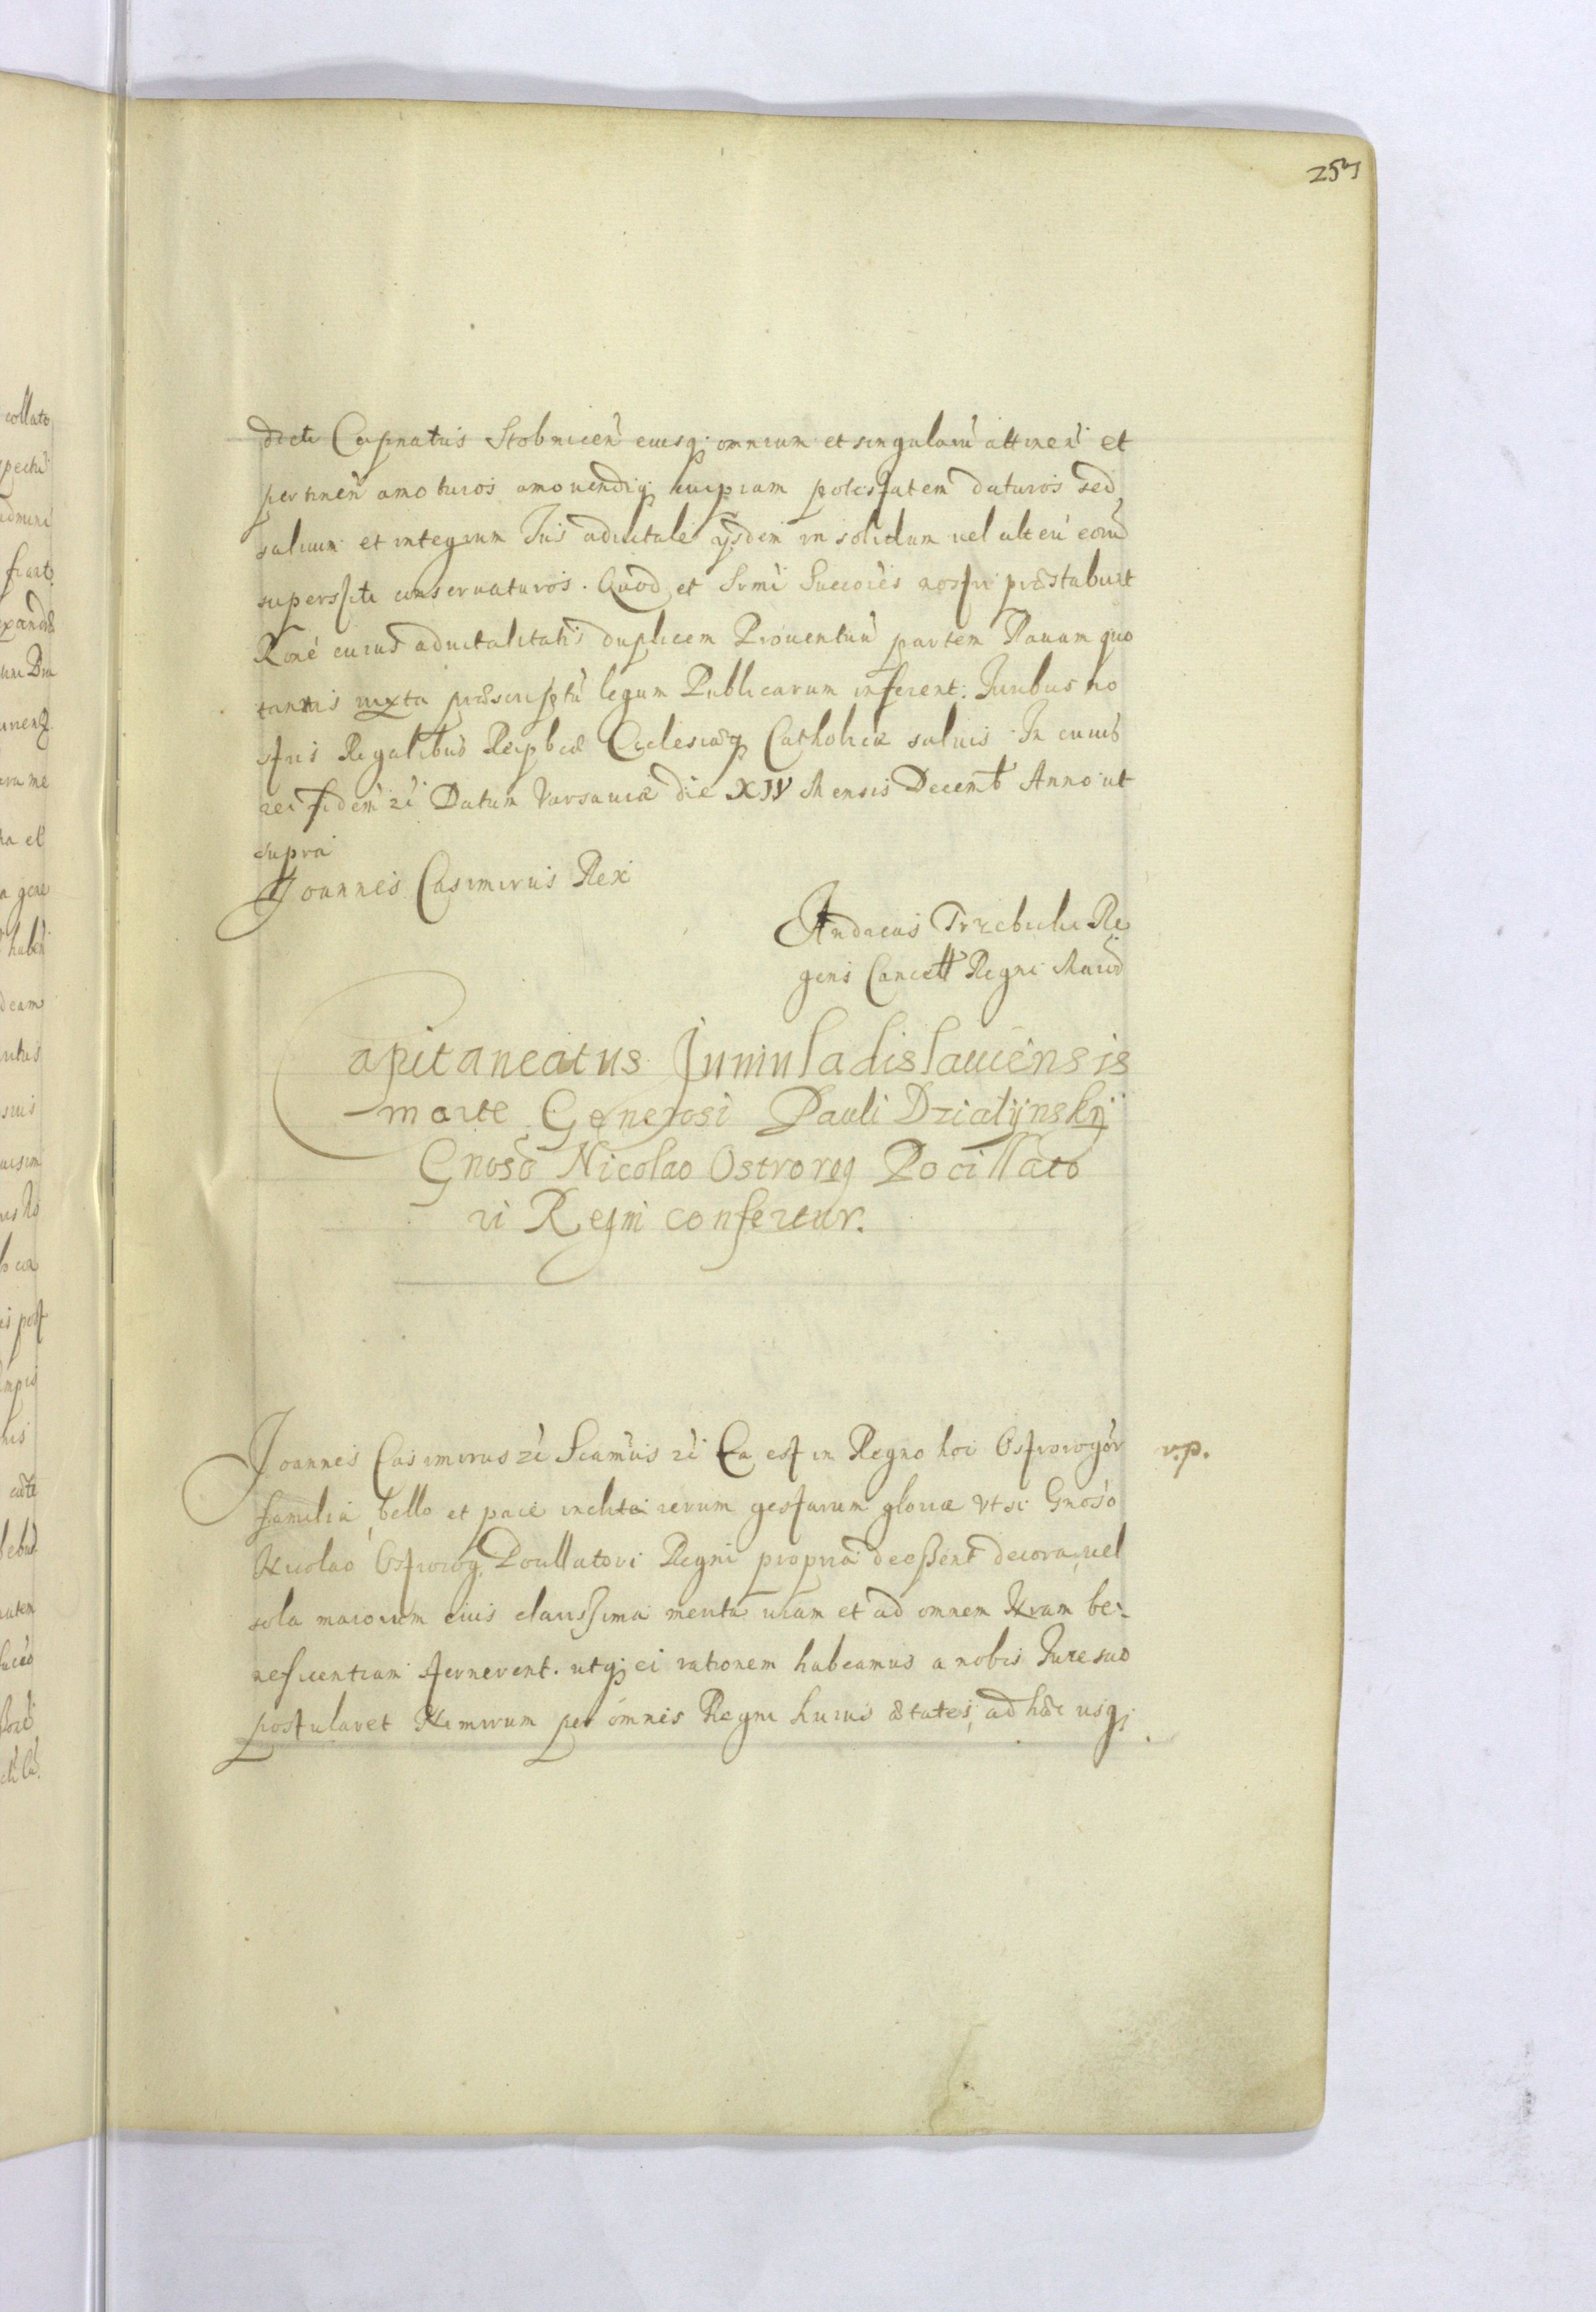 257
dicti Capnatus Stobnicen̄ eiusq; omnium et singularū attinen̄ et
pertinen̄ amoturos amouendiq; cuipiam potestatem daturos sed
saluum et integrum Jus aduitale ijsdem in solidum uel alteri eorūd
superstiti conseruaturos. Quod et Srmi Succores nostri praestabunt
Rone cuius aduitalitatis duplicem Prouentuū partem Rauam quo
tannis iuxta praescriptū legum Publicarum inferent. Juribus no
stris Regalibus Reipbcae Ecclesiaeq; Catholicae saluis. In cuius
rei fidem rc̄ Datum Varsauiae die XIV Mensis Decemb Anno ut
supra
Joannes Casimirus Rex
Andreas Trzebicki Re
gens Cancell Regni
apitaneatus Juniuladislauiensis
morte Generosi Pauli Dzialijnskij
Gnoso Nicolao Ostrorog Pocillato
ri Regni confertur.
Joannes Casimirus rc̄ Scamus rc̄ Ea est in Regno hoc Ostrorogor v.p.
familia, bello et pace inclita rerum gestarum gloria Vt si Gnoso
Nicolao Ostrorog Pocillatori Regni propria deessent decora, uel
sola maiorum eius clarissima merita uiam et ad omnem Nram be-
neficentiam sternerent. utq; ei rationem habeamus a nobis Jure suo
postularet Nimirum per omnes Regni huius aetates, ad haec usq;